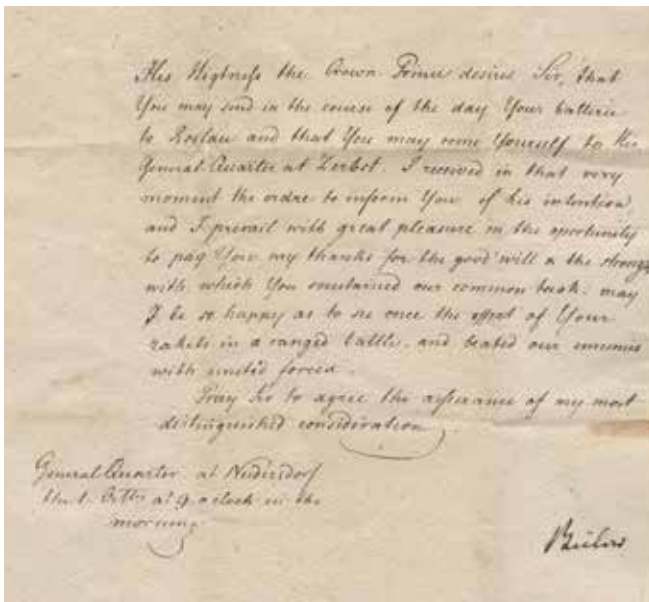 His Highness the Crown Prince desires Sir, that
You may send in the course of the day Your batterie
to Roslau and that You may come Yourself to His
General Quarter at Zerbst. I received in that very
moment the ordre to inform You of his intention,
and I prevail with great pleasure in the oportunity
to pay You my thanks for the good will a the
with which You sustained our common task: may
I be so happy as to see once the effect of Your
rakets in a ranged battle, and beated our ennemies
with united forces.
Pray Sir to agree the assurance of my most
distinguished consideration
General Quarter at Nudersdorf
the 1. Octbr at 9 oclock in the
morning
Bülow